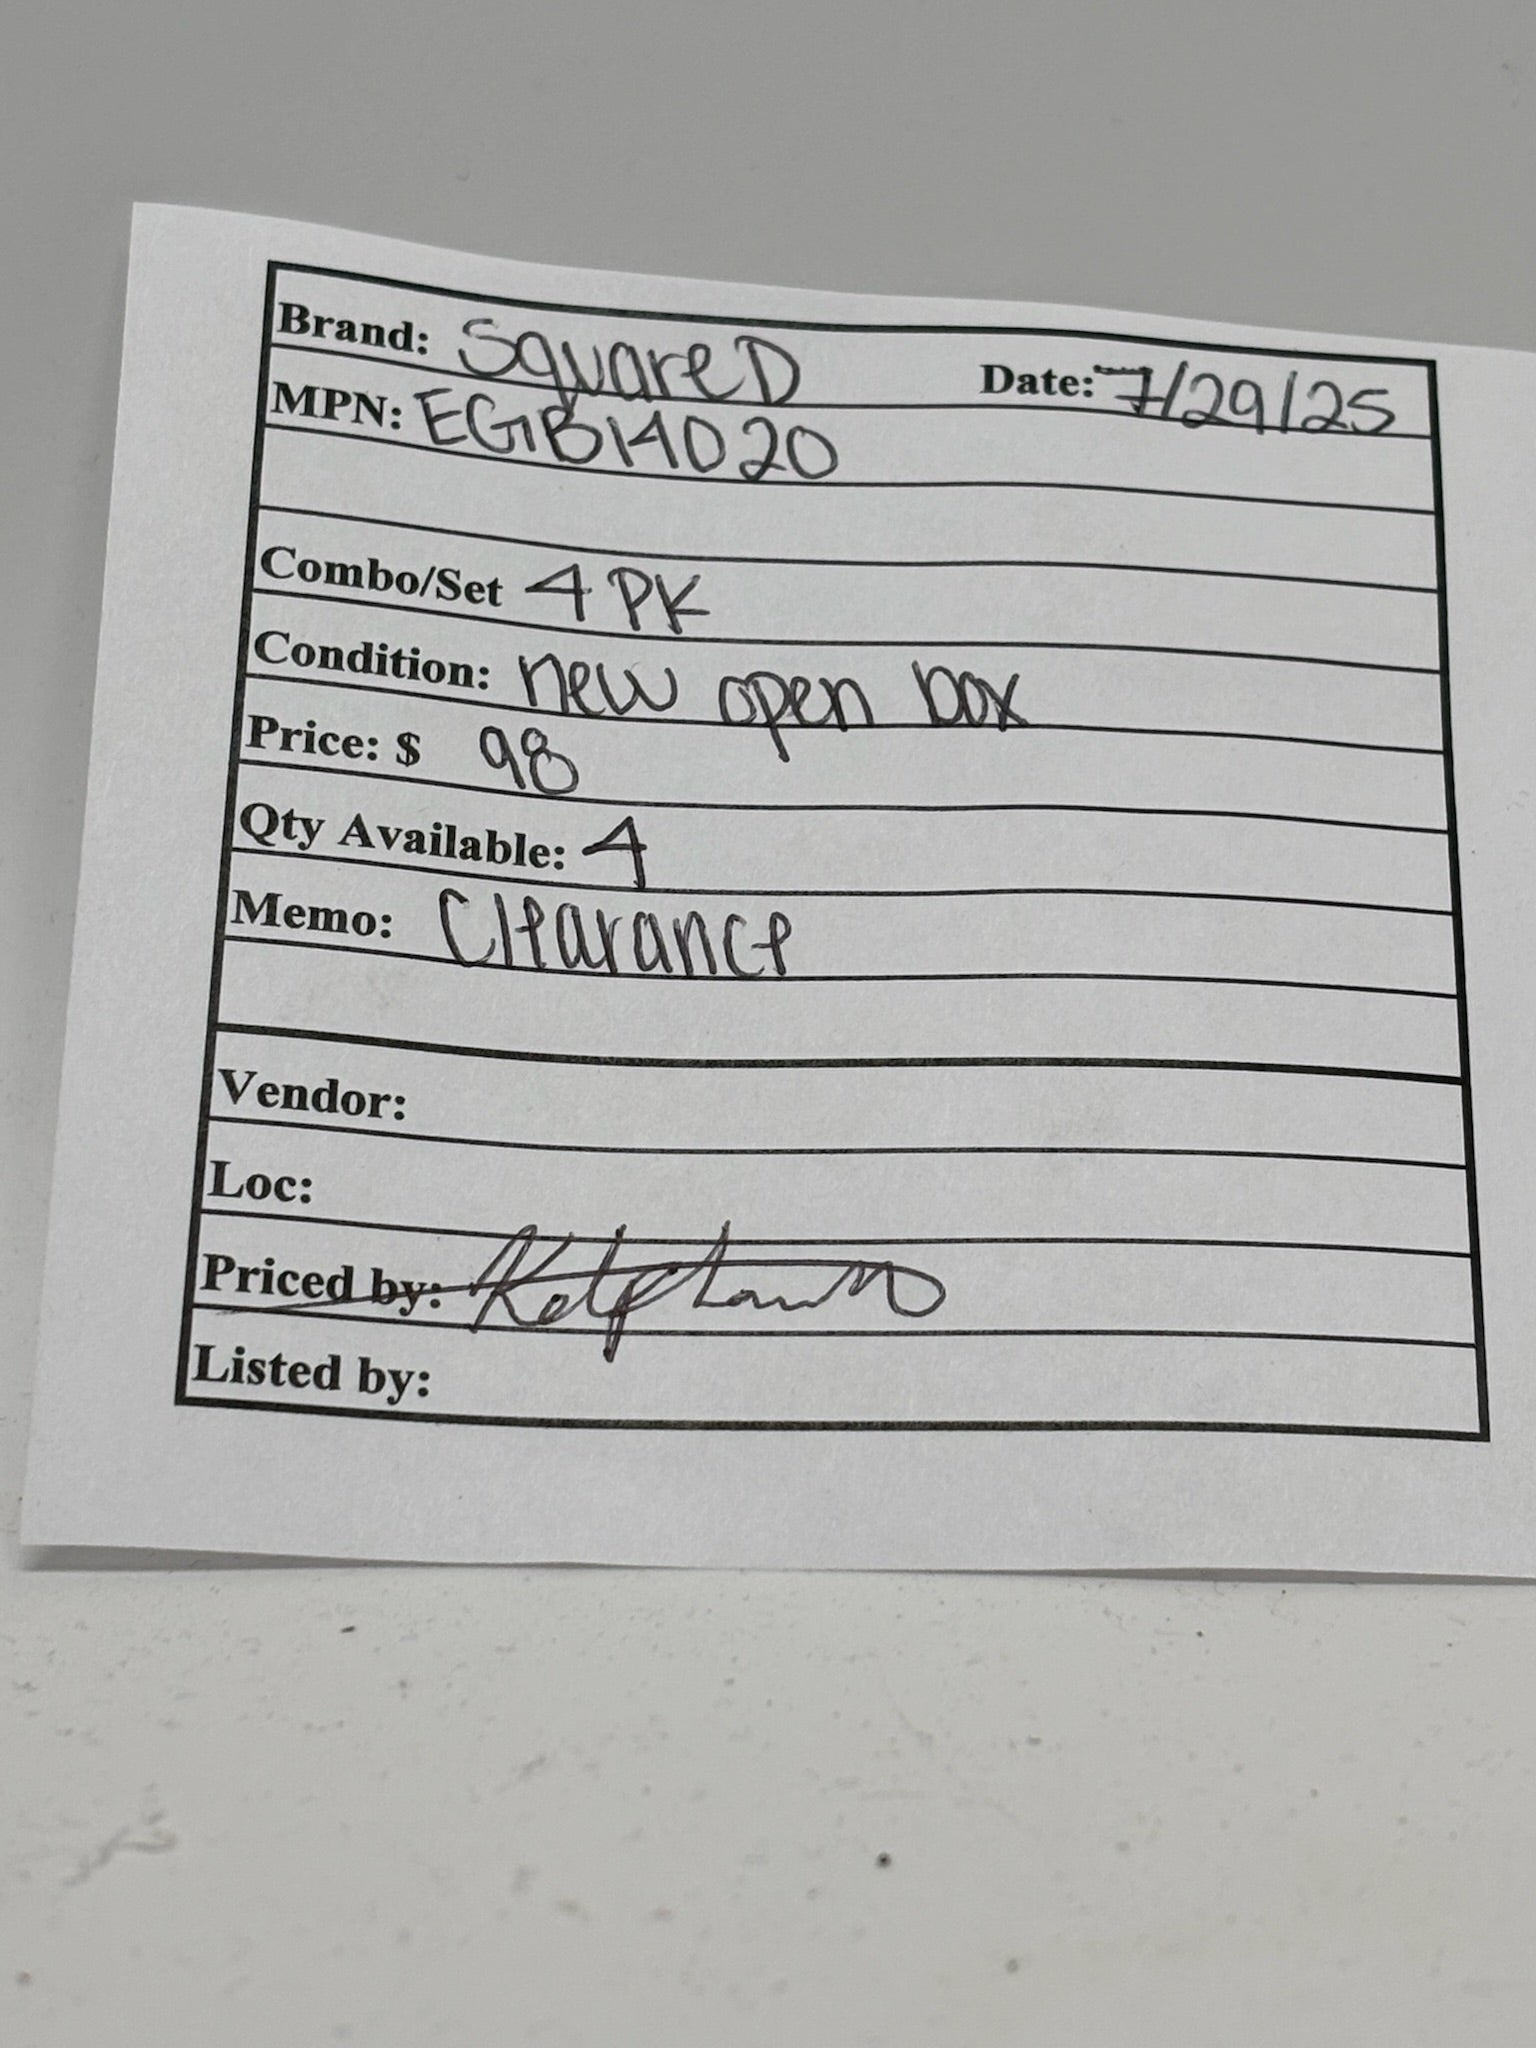 Brand: Square D Date: 7/29/25
MPN: EGB14020
Combo/Set 4 PK
Condition: new open box
Price: $ 98
Qty Available: 4
Memo: Clearance
Vendor:
Loc:
Priced by:
Listed by: